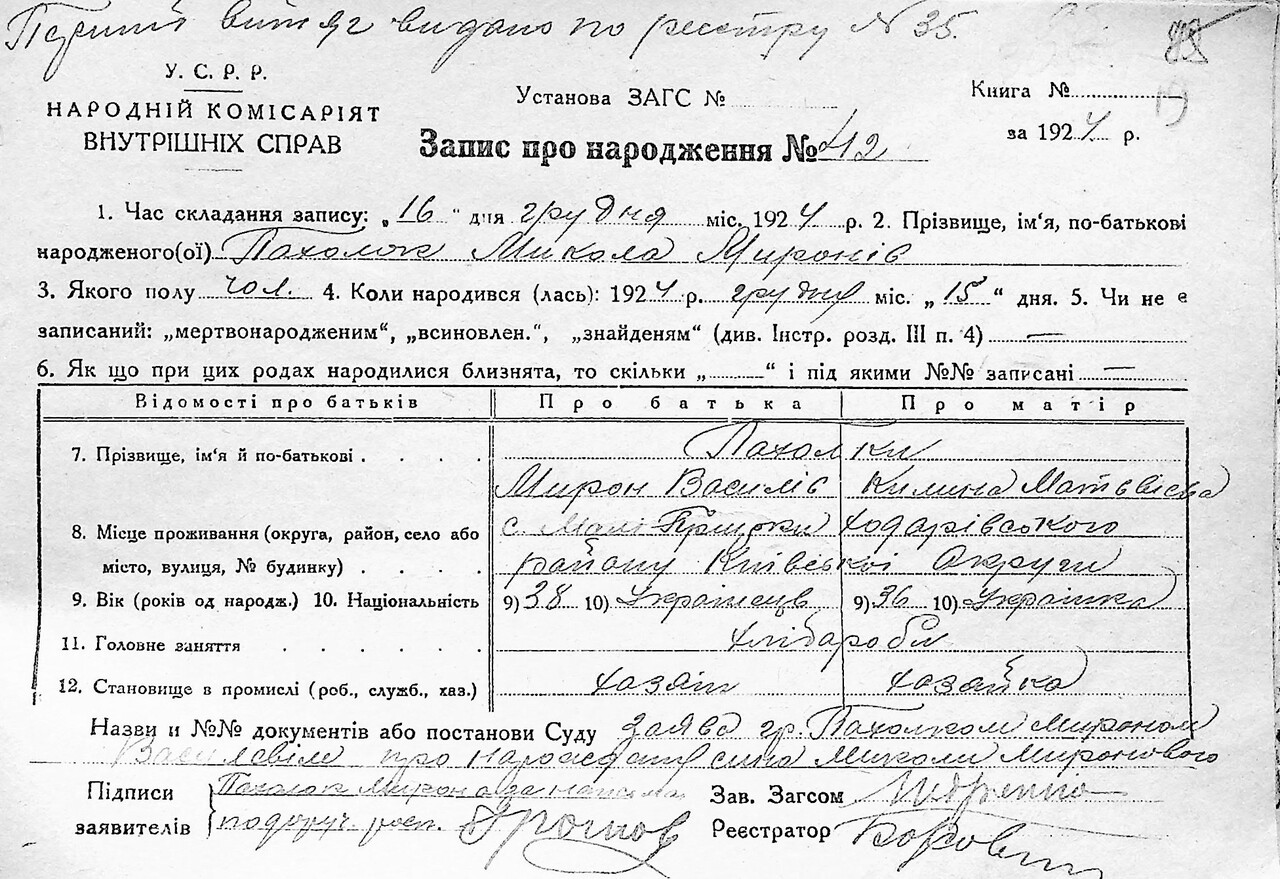 Перший витяг видано по реєстру № 35.
У. С. Р. Р.
НАРОДНІЙ КОМІСАРІЯТ
ВНУТРІШНІХ СПРАВ
Установа ЗАГС №
Книга №
за 1924 р.
Запис про народження № 412
1. Час складання запису: „16“ дня грудня міс. 1924 р. 2. Прізвище, ім‘я, по-батькові
народженого(ої) Пахолок Микола Миронів
3. Якого полу чол. 4. Коли народився (лась): 1924 р. грудня міс. „15“ дня. 5. Чи не є
записаний: „мертвонародженим“, „всиновлен.“, „знайденям“ (див. Інстр. розд. III п. 4) —
6. Як що при цих родах народилися близнята, то скільки „ “ і під якими №№ записані —
Відомості про батьків Про батька Про матір
7. Прізвище, ім‘я й по-батькові . . . . Пахолки
Мирон Василів Килина Матвієва
8. Місце проживання (округа, район, село або с. Малі Прицки Ходарівського
місто, вулиця, № будинку) . . . . району Київської Округи
9. Вік (років од народж.) 10. Національність 9) 38 10) Українець 9) 36 10) Українка
11. Головне заняття . . . . . . хлібароби
12. Становище в промислі (роб., служб., хаз.) хазяін хазяйка
Назви и №№ документів або постанови Суду заява гр. Пахолком Мироном
про сина Миколи Миронового
Підписи Пахолок Мирон а за
заявителів подоруч. росп.
Зав. Загсом
Реєстратор